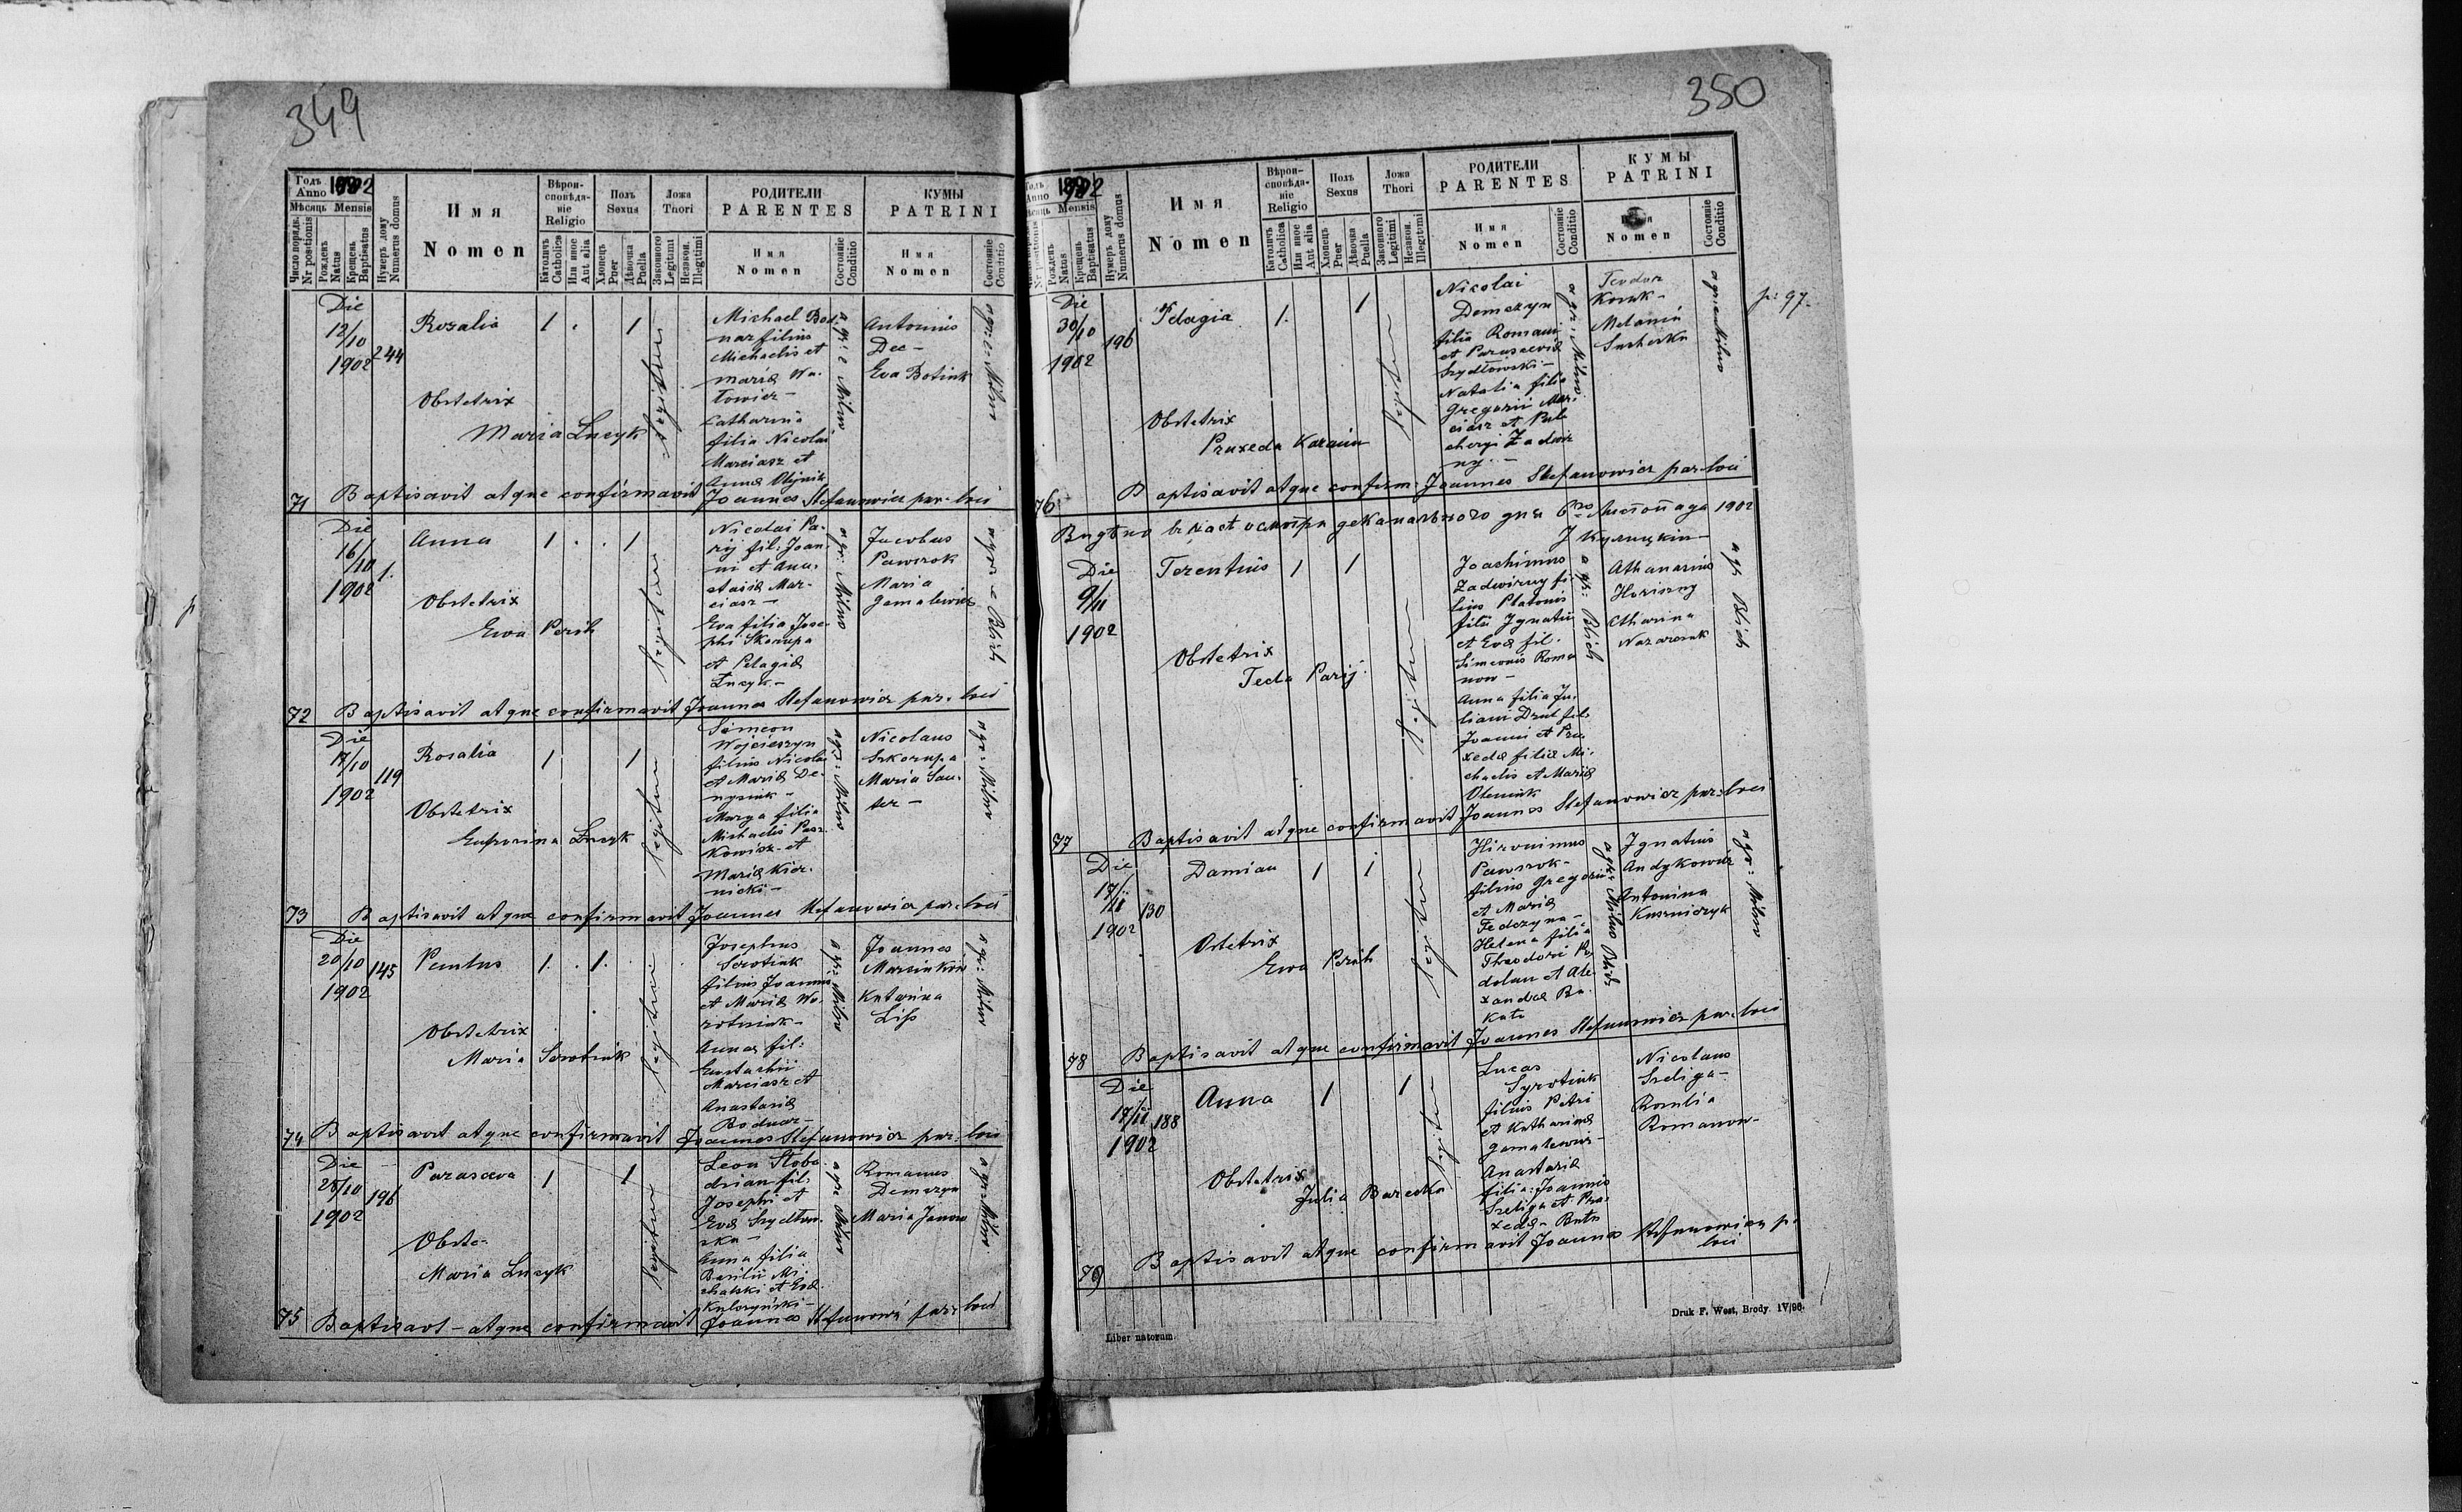 349
Годъ Anno 1902
Мѣсяць Mensis
Число порядк. Nr positionis
Рожденъ Natus
Крещенъ Baptisatus
Нумеръ дому Numerus domus
Имя Nomen
Вѣроисповѣданіе Religio
Католичъ Catholica
Или иное Aut alia
Полъ Sexus
Хлопець Puer
Дѣвочка Puella
Ложа Thori
Законного Legitimi
Незакон. Illegitimi
РОДИТЕЛИ PARENTES
Имя Nomen
Состояніе Conditio
КУМЫ PATRINI
Имя Nomen
Состояніе Conditio
Die
12/10
1902
244
Rosalia
1
1
legitimi
Obstetrix
Maria Łucyk
Michael Bod
nar filius
Michaelis et
Mariæ Wa-
towicz –
Catharina
filia Nicolai
Marciasz et
Annæ Olijnik
agr: e Milno
Antonius
Dec –
Eva Botiuk
agric: Milno
71 Baptisavit atque confirmavit Joannes Stefanowicz par. loci
Die
16/10
1902
1.
Anna
1
1
legitimi
Obstetrix
Ewa Perih
Nicolai Pa-
rij fil: Joan-
ni et Ana-
stasiæ Mar-
ciasz –
Eva filia Jose-
phi Skorupa
et Pelagiæ
Łucyk –
agr: Milno
Jacobus
Pawcrok
Maria
Gamalewicz
agr: e Blich
72 Baptisavit atque confirmavit Joannes Stefanowicz par. loci
Die
17/10
1902
119
Rosalia
1
1
legitimi
Obstetrix
Eufrosina Łucyk
Simeon
Wojcieszyn
filius Nicolai
et Mariæ De-
nysiuk –
Marya filia
Michaelis Pasz
kowicz et
Mariæ Kier-
nicki –
agr: Milno
Nicolaus
Skorupa
Maria Sau-
ter –
agr: Milno
73 Baptisavit atque confirmavit Joannes Stefanowicz par. loci
Die
20/10
1902
145
Paulus
1
1
legitimi
Obstetrix
Maria Serotiuk
Josephus
Serotiuk
filius Joannis
et Mariæ Wo-
rotniak –
Annæ fil:
Eustachii
Marciasz et
Anastasiæ
Bodnar –
agr: Milno
Joannes
Marcinków
Katarina
Liss
agr: Milno
74 Baptisavit atque confirmavit Joannes Stefanowicz par. loci
Die
28/10
1902
196
Parasceva
1
1
legitimi
Obste-
Maria Łucyk
Leon Słobo
drian fil:
Josephi et
Evæ Szydłow-
ska –
Anna filia
Basilii Mi-
chalski et Evæ
Kulczyński –
agr: Milno
Romanus
Demczyn
Maria Janow
agr: Milno
75 Baptisavt – atque confirmavit Joannes Stefanowi par: loci
350
Годъ Anno 1902
Мѣсяць Mensis
Nr positionis
Рожденъ Natus
Крещенъ Baptisatus
Нумеръ дому Numerus domus
Имя Nomen
Вѣроисповѣданіе Religio
Католичъ Catholica
Или иное Aut alia
Полъ Sexus
Хлопець Puer
Дѣвочка Puella
Ложа Thori
Законного Legitimi
Незакон. Illegitimi
РОДИТЕЛИ PARENTES
Имя Nomen
Состояніе Conditio
КУМЫ PATRINI
Имя Nomen
Состояніе Conditio
Die
30/10
1902
196
Pelagia
1.
1
legitimi
Obstetrix
Praxeda Karaim
Nicolai
Demczyn
filia Romani
et Parasceviæ
Szydłowski –
Natalia filia
Gregorii Mar-
ciasz et Pul
cheryi Zadwir
ny –
agr: Milno
Teodor
Kowk –
Melania
agr: Milno
p: 97.
76 Baptisavit atque confirm: Joannes Stefanowicz par. loci
дня 6го Листопада 1902
Die
9/11
1902
Terentius
1
1
legitimi
Obstetrix
Tecla Parij
Joachimus
Zadwirny fi-
lius Platonis
filii Ignatii
et Evæ fil.
Simeonis Roma
now –
Anna filia Ju-
liani Drul fil:
Joanni et Pra-
xedæ filiæ Mi-
chaelis et Mariæ
Oleniuk
agr: Blich
Athanasius
Horiszny
Nazarczuk
agr Blich
77 Baptisavit atque confirmavit Joannes Stefanowicz par. loci
Die
17/11
1902
130
Damian
1
1
legitimi
Obtetrix
Ewa Perih
Hieronimus
Pawcrok –
filius Gregorii
et Mariæ
Fedczyna –
Helena filia
Theodori Po
dolan et Ale
xandræ Ba-
kati
agr: Milno Blich
Ignatius
Andykowicz
Antonina
Kuszniczyk
agr: Milno
78 Baptisavit atque confirmavit Joannes Stefanowicz par. loci
Die
17/11
1902
188
Anna
1
1
legitimi
Obstetrix
Julia Barecka
Lucas
Syrotiuk
filius Petri
et Katharinæ
Gamalewicz –
Anastasiæ
filia: Joannis
Szeliga et Pra-
xedæ – Buta
Nicolaus
Szeliga –
Rosalia
Romanow –
79 Baptisavit atque confirmavit Joannes Stefanowicz p.
loci
Liber natorum.
Druk F. West, Brody. IV/96.